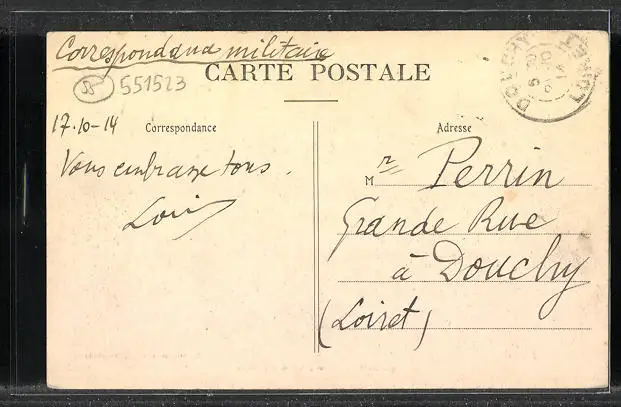 Correspondance militaire
551523
CARTE POSTALE
DOUCHY LOIRET
17-10-14
Correspondance
Adresse
Vous embrasse tous.
Louis
Mr Perrin
Grande Rue
à Douchy
(Loiret)